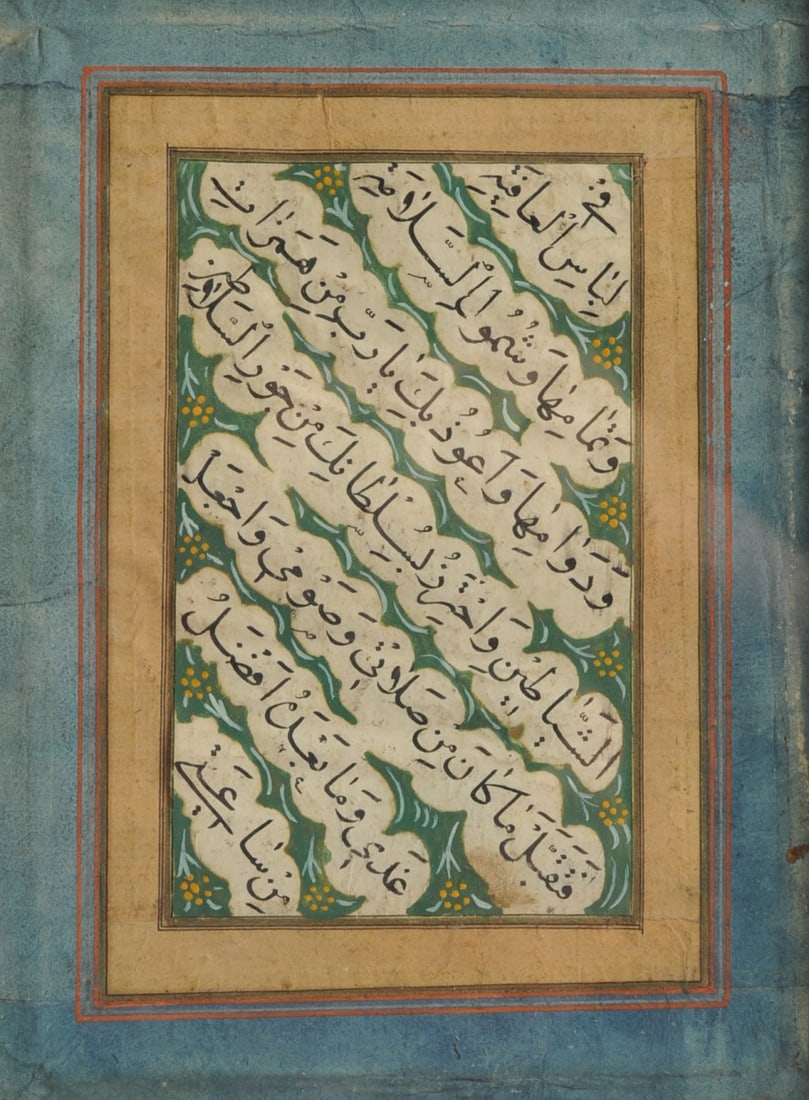 في
لِبٰاسِ الْعٰافِيَةِ
وَتَمٰامِهٰا وَشُمُولِ السَّلاٰمَةِ
وَدَوٰامِهٰا وَاَعُوذُ بِكَ يٰا رَبِّ مِنْ هَمَزٰاتِ
الشَّيٰاطِينِ وَاَحْتَرِزُ بِسُلْطٰانِكَ مِنْ جَوْرِ السَّلاٰطِينِ
فَتَقَبَّلْ مٰا كٰانَ مِنْ صَلاٰتِي وَصَوْمِي وَاجْعَلْ
غَدِي وَمٰا بَعْدَهُ اَفْضَلَ
مِنْ سٰاعَتِي